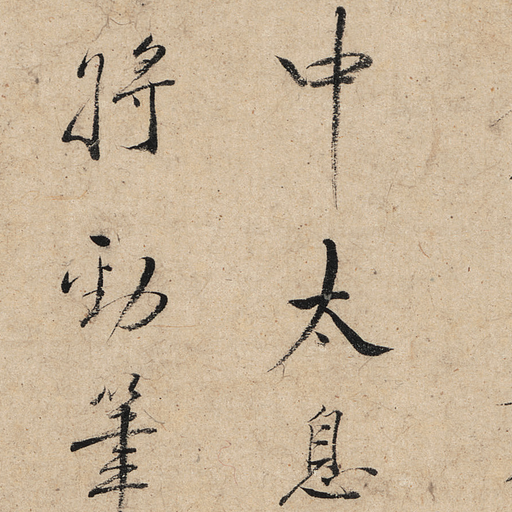 中太息
將勁筆